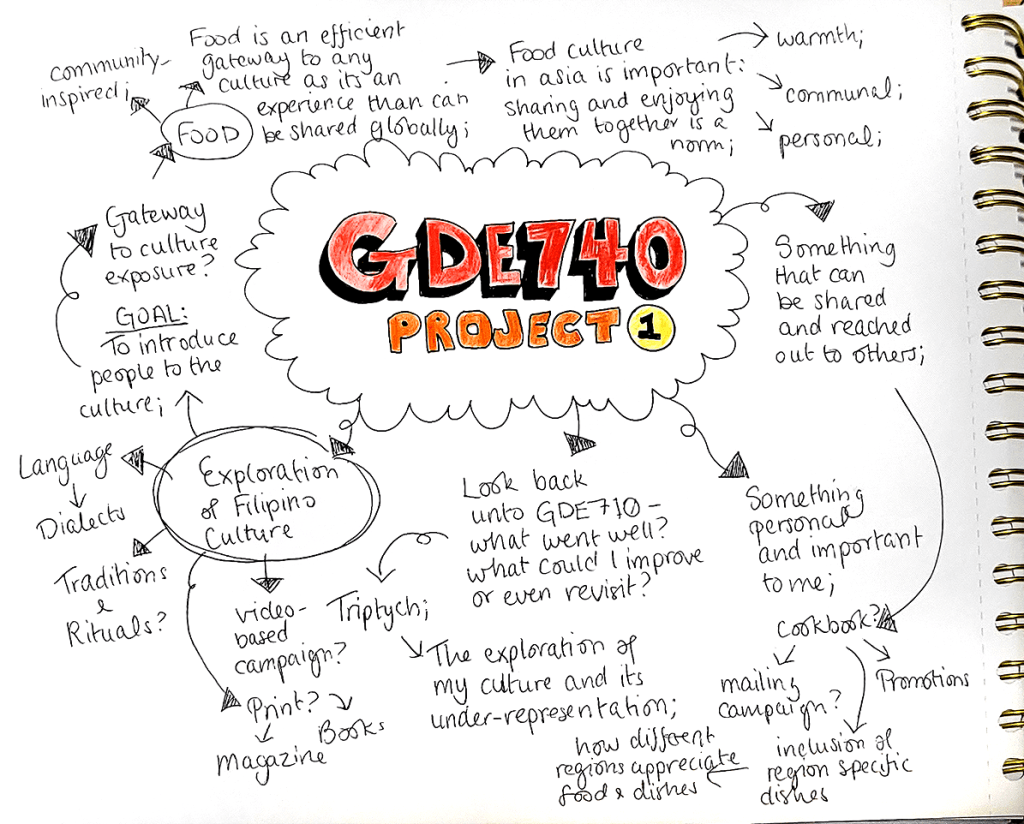 community-
inspired;
FOOD
Food is an efficient
gateway to any
culture as its an
experience than can
be shared globally;
Food culture
in asia is important:
sharing and enjoying
them together is a
norm;
warmth;
communal;
personal;
GDE740
PROJECT 1
Gateway
to culture
exposure?
GOAL:
To introduce
people to the
culture;
Something
that can
be shared
and reached
out to others;
Exploration
of Filipino
Culture
Language
Dialects
Traditions
&
Rituals?
video-
based
campaign?
Print?
Books
Magazine
Look back
unto GDE710-
what went well?
what could I improve
or even revisit?
Triptych;
The exploration of
my culture and its
under-representation;
Something
personal
and important
to me;
Cookbook?
mailing
campaign?
Promotions
inclusion of
region specific
dishes
how different
regions appreciate
food & dishes